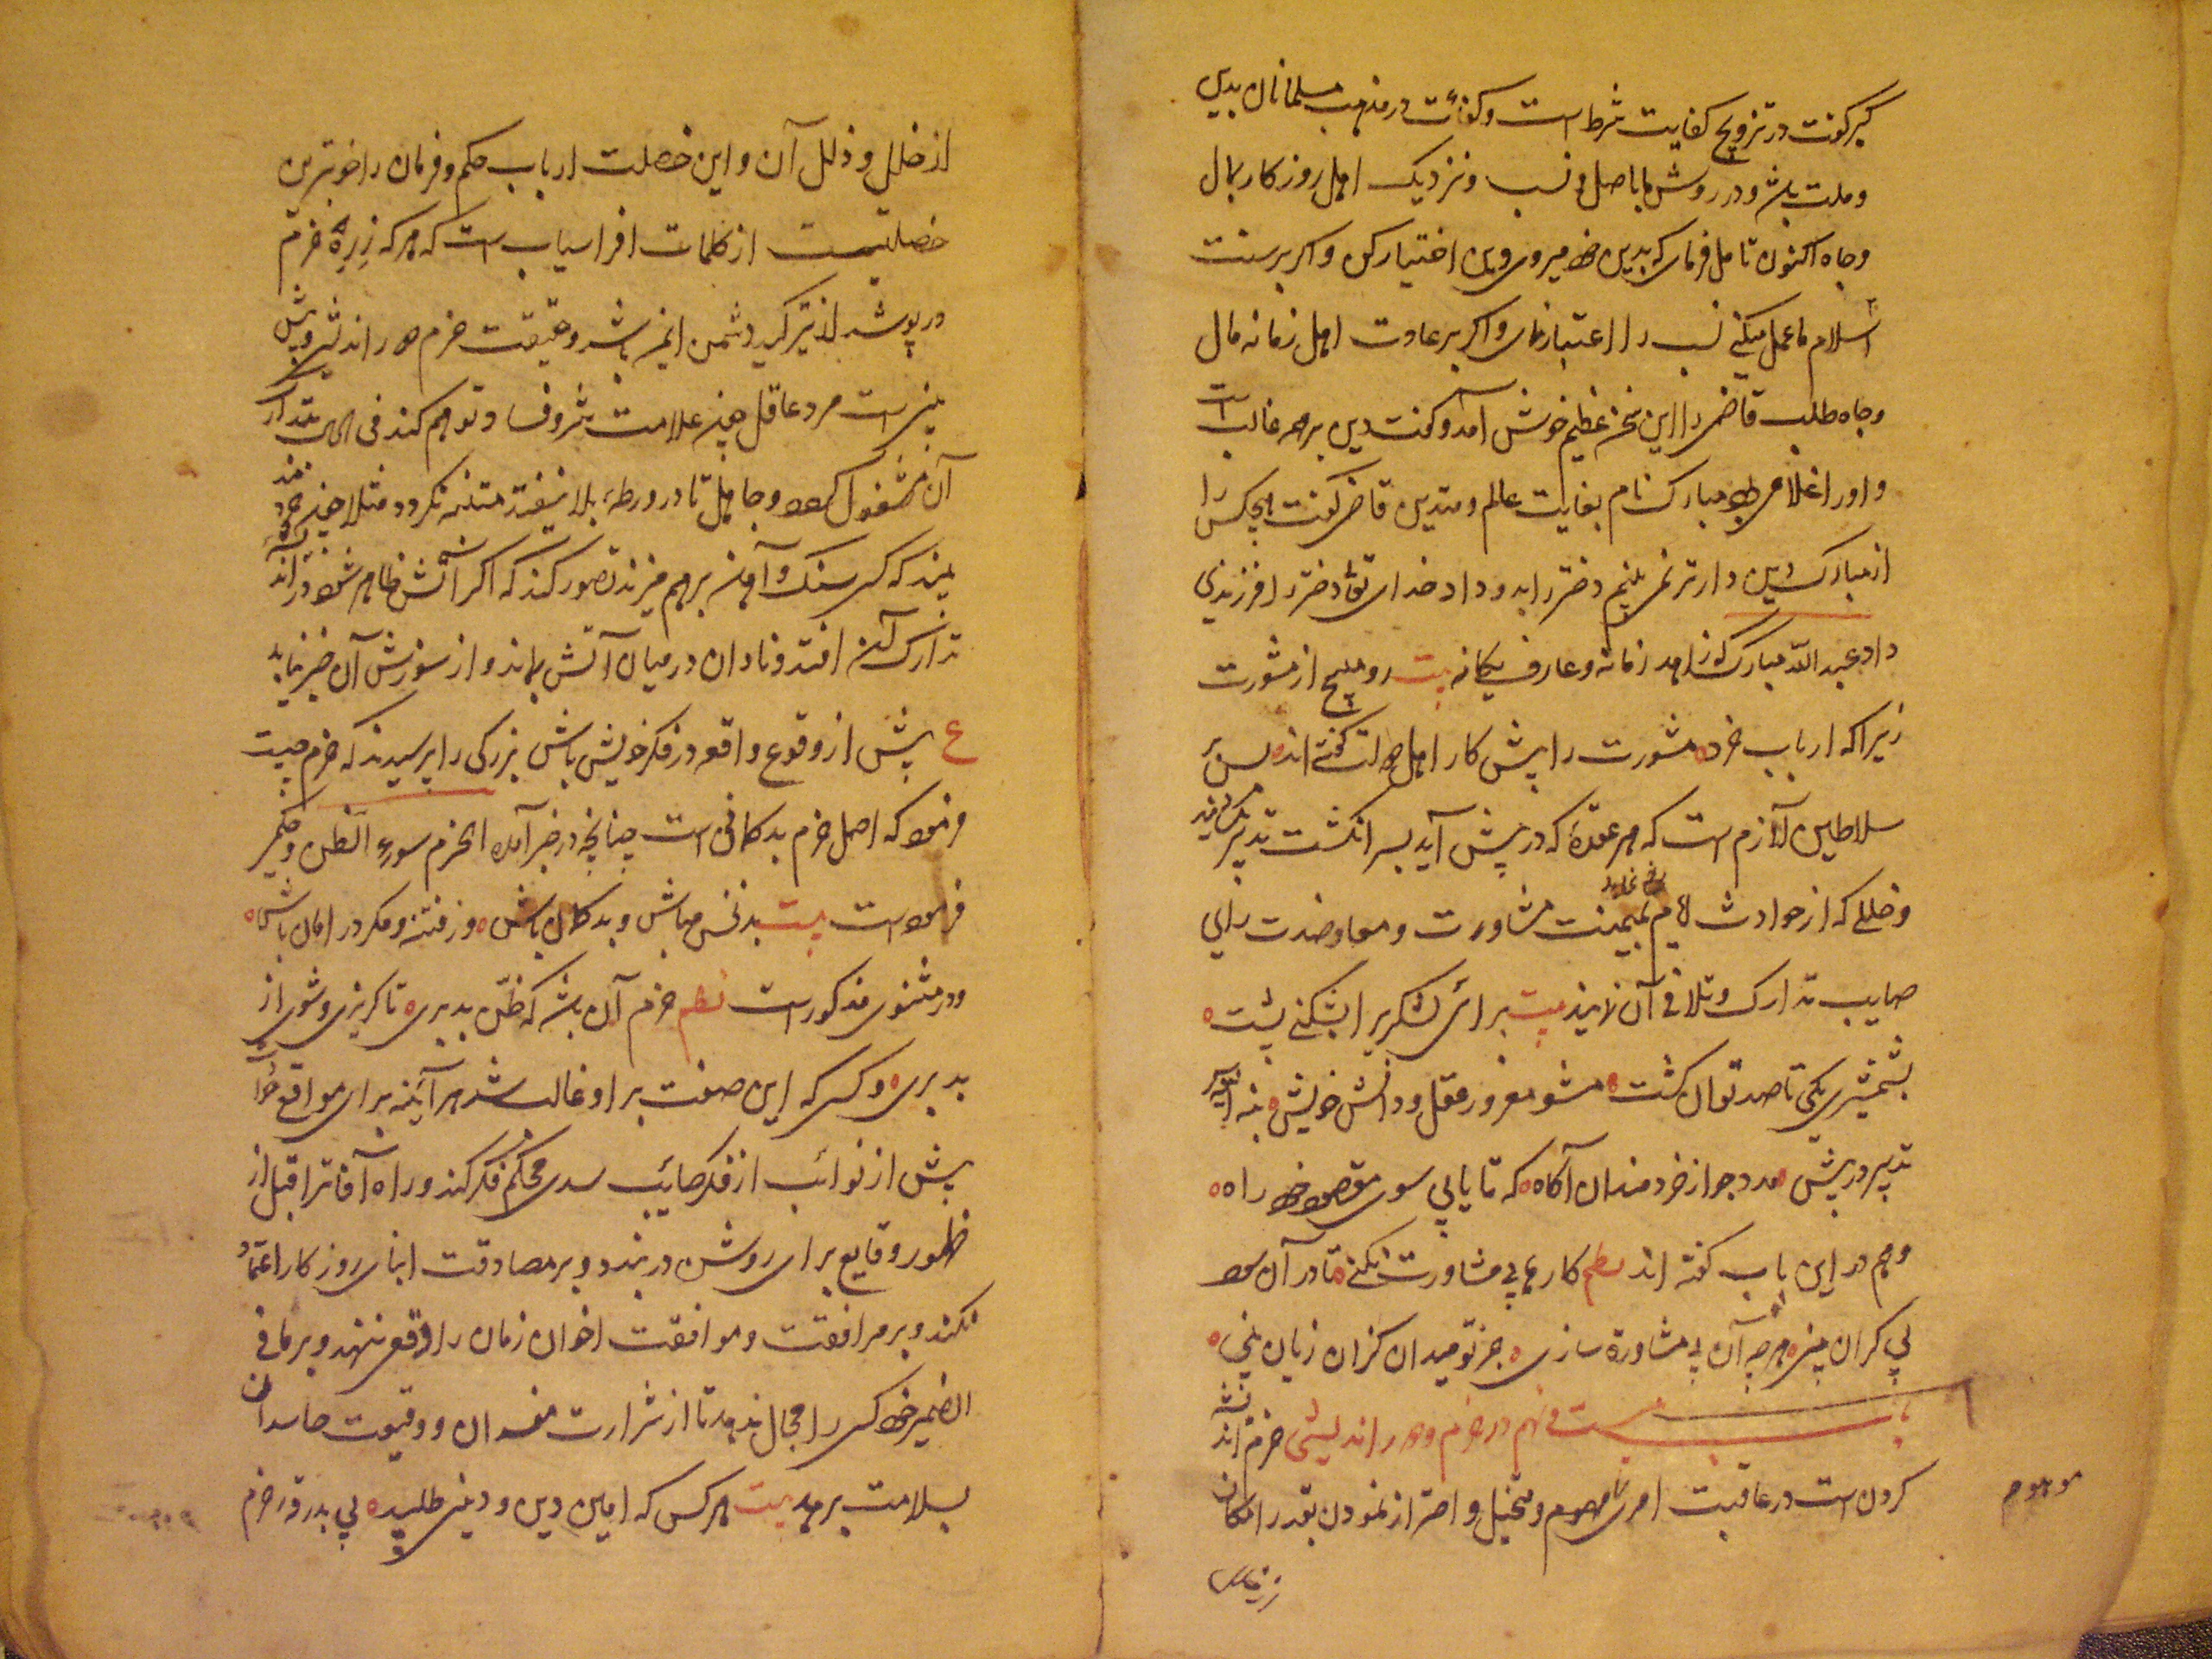 کبر گفت در تزویج کفایت شرط است و کفائت در مذهب مسلمانان بدین
و ملت باشد و در روش ما باصل و نسب و نزدیک اهل روزکار بمال
و جاه اکنون تامل فرمای که بدین خود میروی دین اختیار کن و اکر برسنت
اسلام ما عمل میکنی نسب را اعتبار نمای و اکر بر عادت اهل زمانه مال
و جاه طلب قاضی را این سخن عظیم خوش آمد و گفت دین برهمه غالب است
و او را غلامی بود مبارک نام بغایت عالم و متدین قاضی گفت هیچکس را
از مبارک دین دارتر نمی بینم دختر را بدو داد خدای تعالی دختر را فرزندی
داد عبدالله مبارک کو زاهد زمانه و عارف یکانه بیت رو مپیچ از مشورت
زیرا که ارباب خرد مشورت را پیش کار اهل دولت گفته اند پس بر
سلاطین لازم است که هر عقدۀ که در پیش آید بسر انکشت تدبیر بکشایند
و خللی که از حوادث ایام رخ نماید بمیمنت مشاورت و معاوضت رای
صایب تدارک و تلافی آن نمایند بیت برای لشکری را بشکنی پشت
بشمشیری یکی تا صد توان کشت مشو مغرور عقل و دانش خویش بنه آیین
تدبیر در پیش مدد جو از خردمندان آکاه که تا یابی سوی مقصود خود راه
و هم در این باب گفته اند نظم کارها بی مشاورت نکنی تا در آن سود
بی کران بینی هر چه آن بی مشاوره سازی جز تو میدان کزان زیان بینی
باب بیست و نهم در حزم و دور اندیشی حزم اندیشه
کردن است در عاقبت امری موهوم و متخیل و احتراز نمودن بقدر امکان
موهوم
از خلل و ذلل آن و این خصلت ارباب حکم و فرمان را خوبترین
خصلتیست از کلمات افراسیاب است که هر که زرۀ حزم
در پوشد از تیر کید دشمن ایمن باشد و حقیقت حزم دور اندیشی و پیش
بینی است مرد عاقل چون علامت شر و فساد توهم کند فی الحال بتدارک
آن مشغول کردد و جاهل تا در ورطۀ بلا نیفتد متنبه نکردد مثلا چون خردمند
بیند که کسی سنک و آهن برهم میزند تصور کند که اکر آتش ظاهر شود در
تدارک آن افتد و نادان در میان آتش بماند و از سوزش آن خبر نیابد
ع پیش از وقوع واقعه در فکر خویش باش بزرکی را پرسیدند که حزم چیست
فرمود که اصل حزم بدکمانی است چنانچه در خبر آمده الحزم سوء الظن و حکیم
فرموده است بیت بدنفس مباش و بدکمان باش وز فتنه و مکر در امان باش
و در مثنوی مذکور است نظم حزم آن باشد که ظن بد بری تا کریزی و شوی از
بد بری و کسی که این صفت بر او غالب شد هر آئینه برای مواقع حوادث
پیش از نوائب از فکر صایب سدی محکم فکر کند و راه آفات را قبل از
ظهور وقایع برای روشن در بندد و بر مصادقت ابنای روزکار اعتماد
نکند و بر مرافقت و موافقت اخوان زمان را وقعی ننهد و بر ما فی
الضمیر خود کسی را مجال ندهد تا از شرارت مفسدان و وقیعت حاسدان
بسلامت برهد بیت هرکس که امین دین و دنیی طلبیده بی بدرقۀ حزم